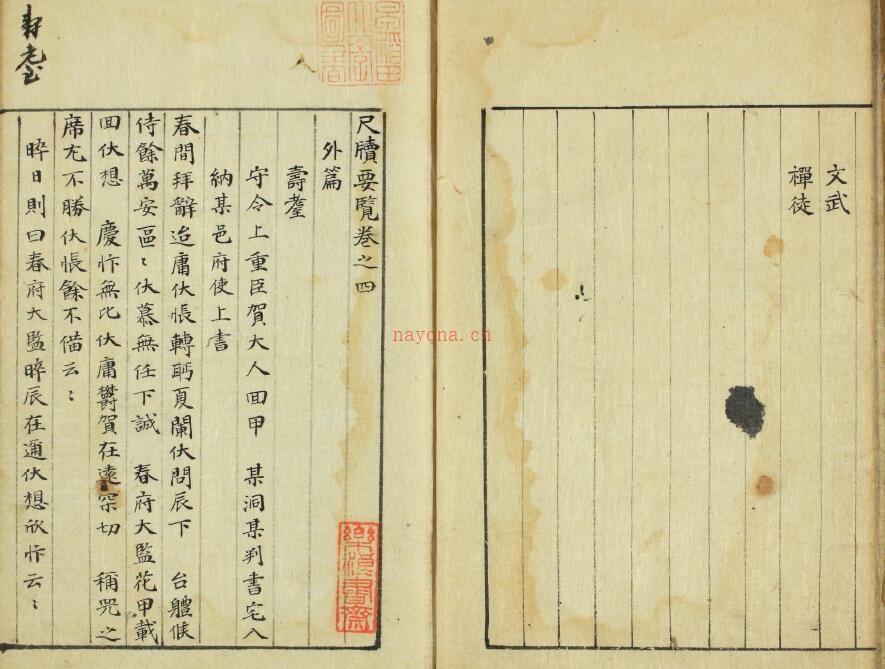 文武
禪徒
尺牘要覽卷之四
外篇
壽耋
守令上重臣賀大人回甲　某洞某判書宅入
納某邑府使上書
春間拜辭迨庸伏悵轉眄夏闌伏問辰下　台體候
侍餘萬安區〻伏慕無任下誠　春府大監花甲載
回伏想　慶忭無比伏庸欝賀在遠罙切　稱兕之
席尤不勝伏悵餘不備云〻
晬日則曰春府大監晬辰在邇伏想欣忭云〻
壽耋
樂浪書齋
nayona.cn